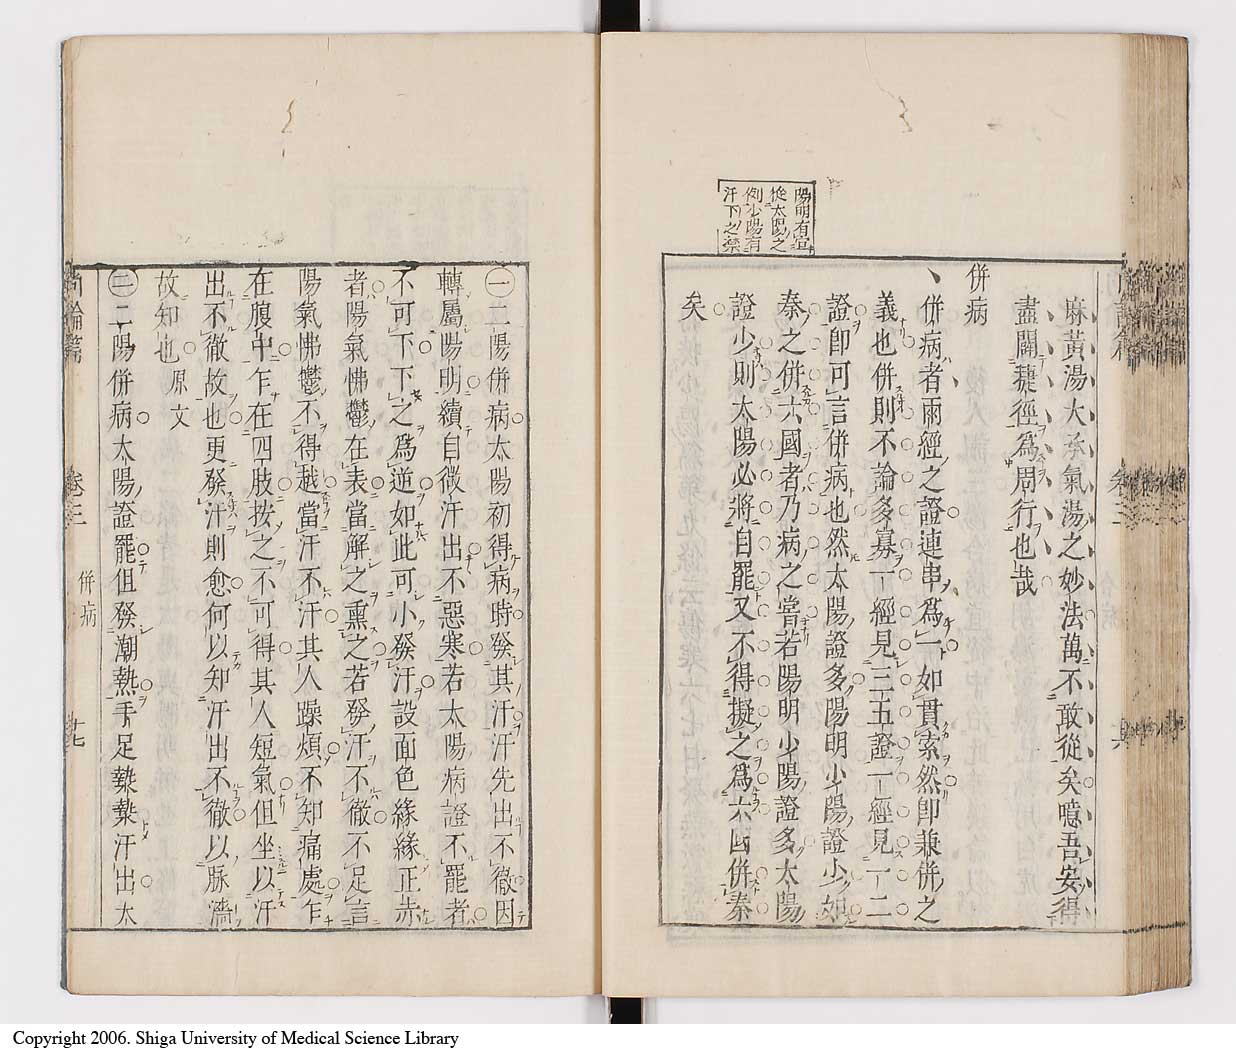 陽明有宜
從太陽之
例少陽有
汗下之禁
麻黃湯大承氣湯之妙法萬不敢從矣噫吾安得
盡闢蕀徑為周行也哉
併病
併病者兩經之證連串為一如貫索然卽兼併之
義也併則不論多寡一經見三五證一經見一二
證卽可言併病也然太陽證多陽明少陽證少如
秦之併六國者乃病之嘗若陽明少陽證多太陽
證少則太陽必將自罷又不得擬之為六國併秦
矣
㊀二陽併病太陽初得病時發其汗汗先出不徹因
轉屬陽明續自微汗出不惡寒若太陽病證不罷者
不可下下之為逆如此可小發汗設面色緣緣正赤
者陽氣怫鬱在表當解之熏之若發汗不徹不足言
陽氣怫鬱不得越當汗不汗其人躁煩不知痛處乍
在腹中乍在四肢按之不可得其人短氣但坐以汗
出不徹故也更發汗則愈何以知汗出不徹以脉濇
故知也 原文
㊁二陽併病太陽證罷但發潮熱手足漐漐汗出大
尚論篇 卷三 併病 十七
Copyright 2006. Shiga University of Medical Science Library